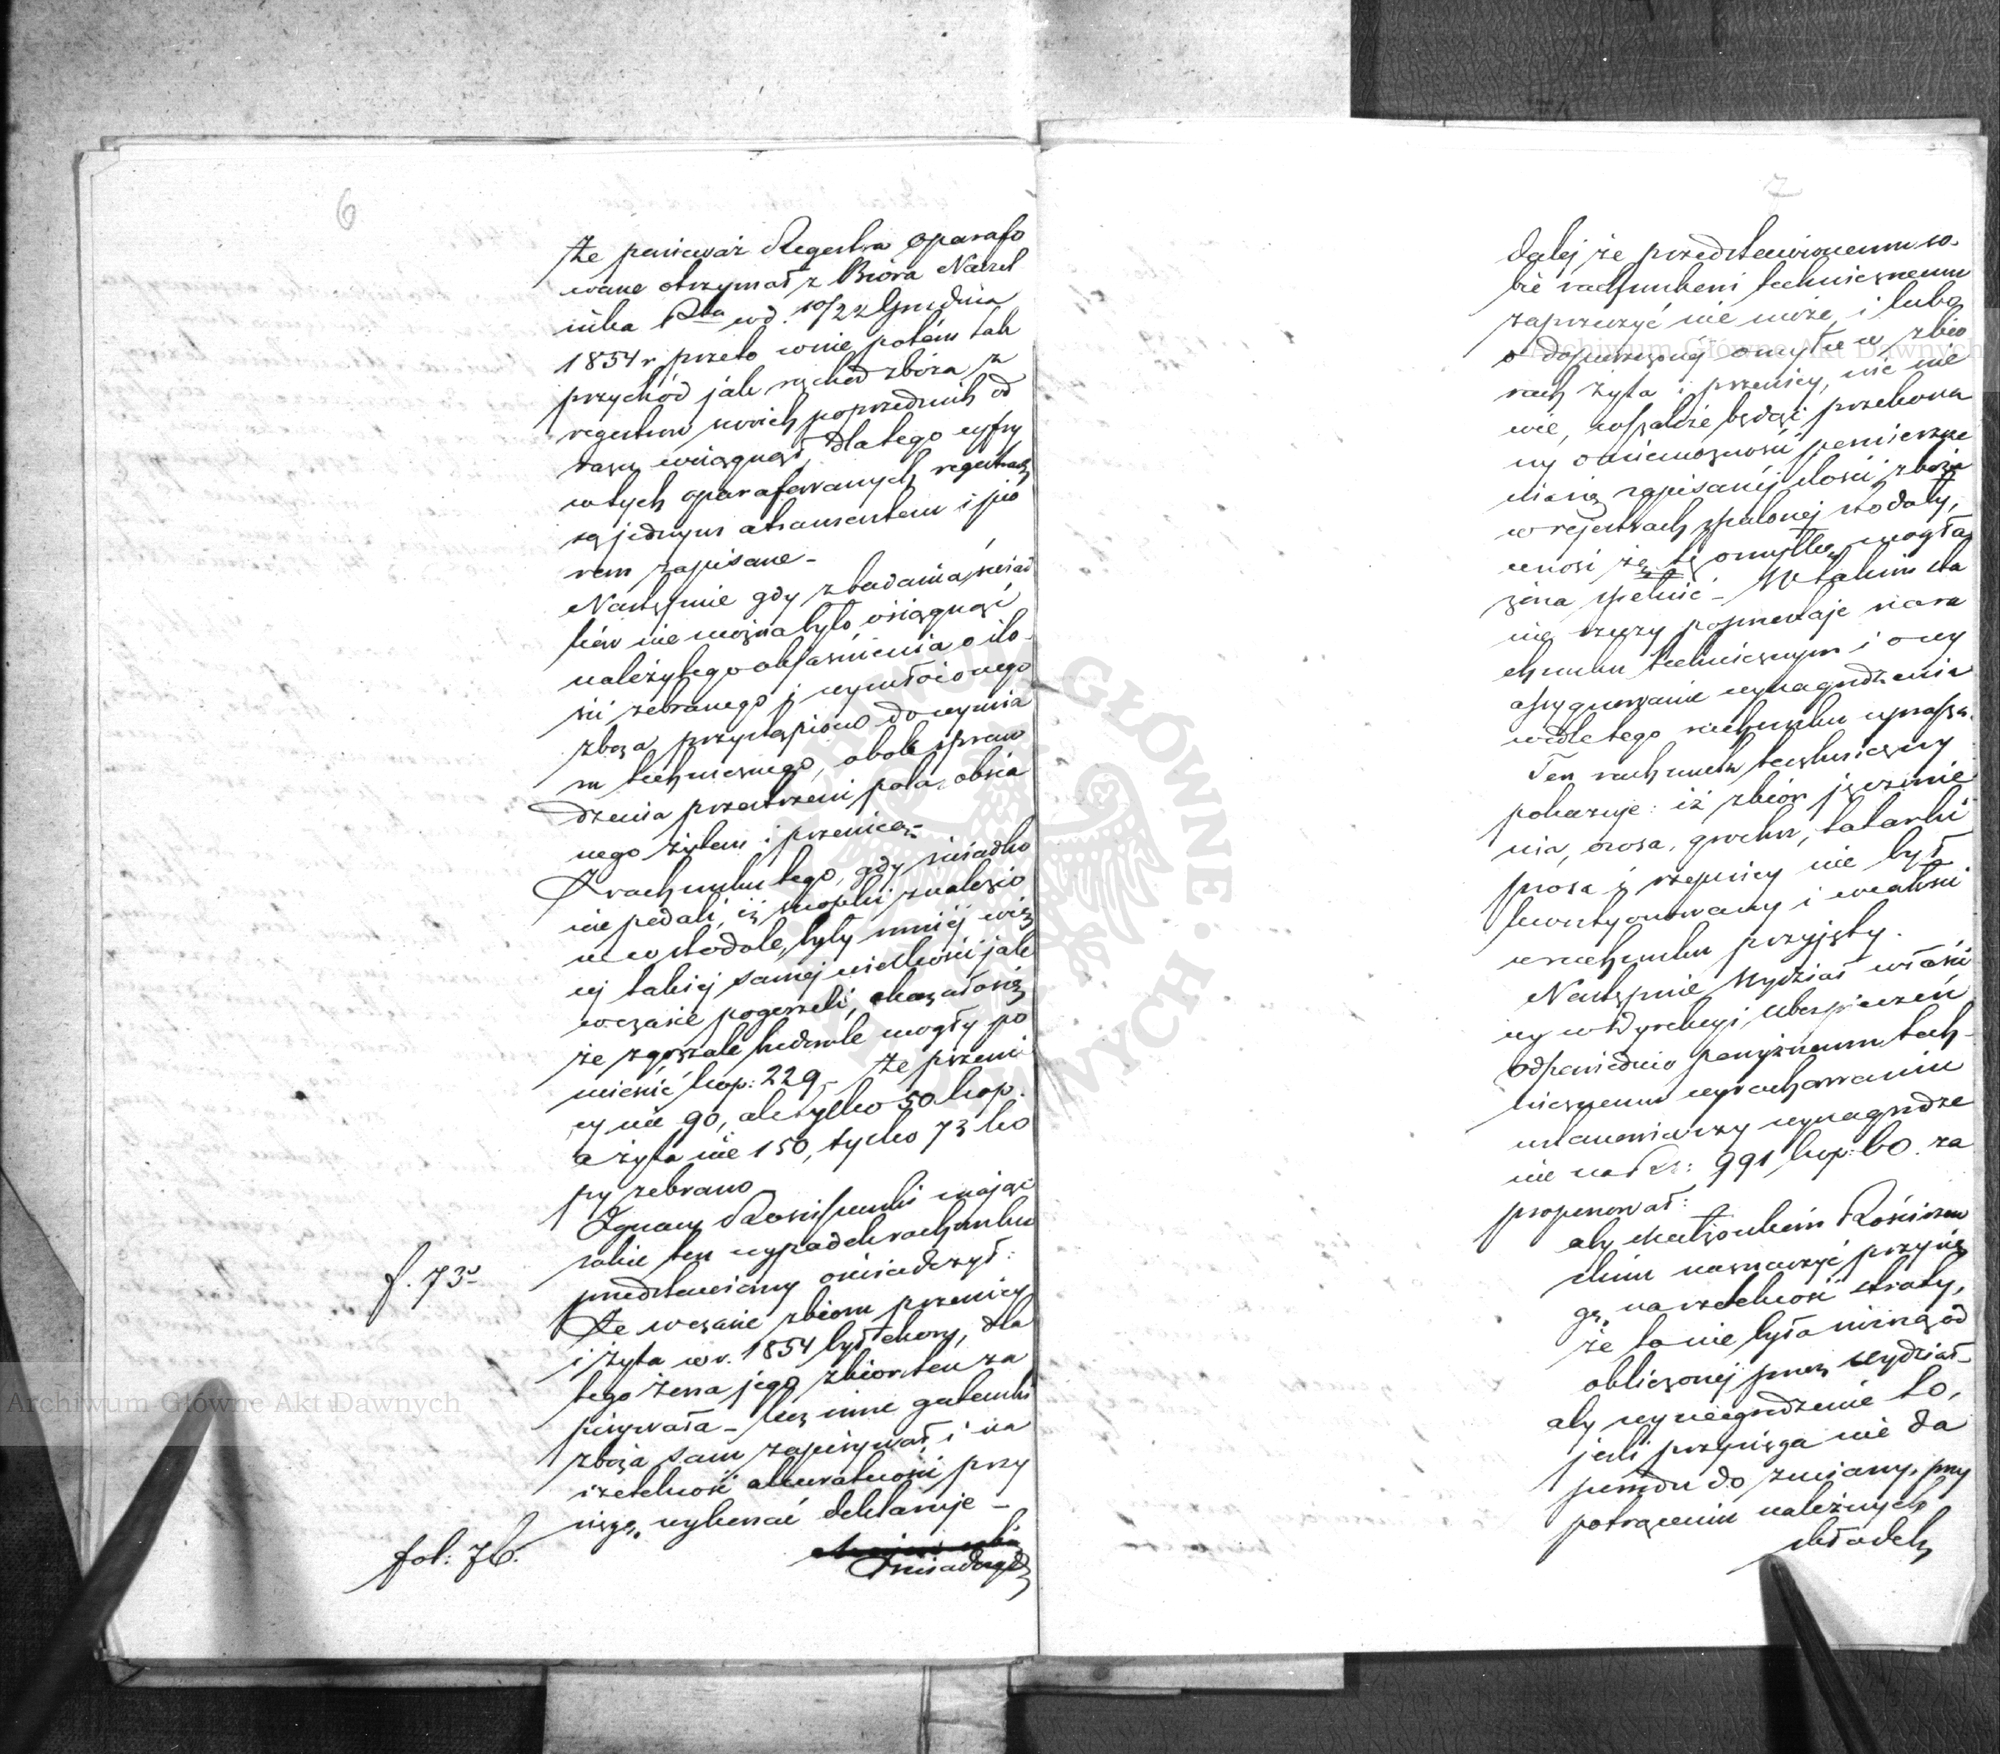 6
Że ponieważ Regestra oparafo
wane otrzymał z Bióra Naczel
nika Ptu w d. 10/22 Grudnia
1854 r przeto w nie potém tak
przychód jak rozchód zbóża z
regestrów swoich poprzednich od
razu wciągnął, dlatego cyfry
w tych oparafowanych regestrach
są jednym atramentem i pió
rem zapisane –
Następnie gdy z badania świad
ków nie można było osiągnąść
należytego objaśnienia o ilo
ści zebranego i wymłóconego
zboża, przystąpiono do
technicznego, obok spraw
dzenia przestrzeni pola, obsia
nego żytem i pszenicą –
Z rachunku tego, gdy świadko
wie podali, iż snopki
w stodole, były mniéj wię
cej takiej samej wielkości jak
w czasie pogorzeli, okazało się
że zgorzałe mogły po
mieścić kop: 229 – Że pszeni
cy nie 90, ale tylko 50 kop.
a żyta nie 150, tylko 73 ko
py zebrano
Ignacy mając
sobie ten wypadek rachunku
przedstawiony oświadczył:
f. 73v
Że w czasie zbioru pszenicy
i żyta w r. 1854 był chory, dla
tego żona jego zbior ten za
pisywała – lecz inne gatunki
zboża sam zapisywał i na
rzetelność akuratność przy
sięgę wykonać deklaruje –
fol: 76.
Oświadczył
7
dalej że przedstawionemu so
bie rachunkowi technicznemu
zaprzeczyć nie może, i lubo
o dopuszczonej omyłce w zbio
rach żyta i pszenicy, nic nie
wie, wszakże będąc przekona
ny o niemożności pomieszcze
nia zapisanéj ilości zboża
w rejestrach spalonej stodoły,
wnosi że tę omyłkę mogła
żona spełnić – W takim sta
nie rzeczy poprzestaje na ra
chunku technicznym i o wy
asygnowanie wynagrodzenia
wedle tego rachunku uprasza.
Ten rachunek techniczny
pokazuje: iż zbiór jęczmie
nia, owsa, grochu, tatarki
prosa i rzepnicy nie był
kwestyonowany i w całości
w rachunku przyjęty.
Następnie Wydział właści
wy w Dyrekcyi Ubezpieczeń
odpowiednio powyższemu tech
nicznemu wyrachowaniu
ustanowiwszy wynagrodze
nie na Rs: 991 kop: 60. za
proponował:
aby małżonkom
skim naznaczyć przysię
gę, na rzetelność straty,
że ta nie była niższą od
obliczonej przez Wydział –
aby wynagrodzenie to,
jeśli przysięga nie da
powodu do zmiany, przy
potrąceniu należnych
składek